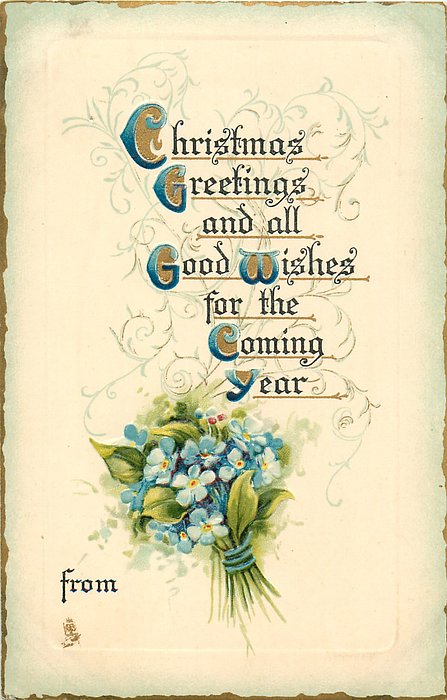 Christmas
Greetings
and all
Good Wishes
for the
Coming
Year
from